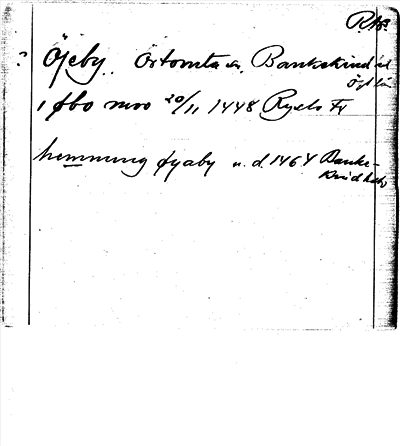 RAp.
? Öjeby. Örtomta sn. Bankekind hd
Ögl län
i øbo moo 20/11 1448 Ryels Fr
hemming øyaby u. d. 1464 Banke-
kindhd